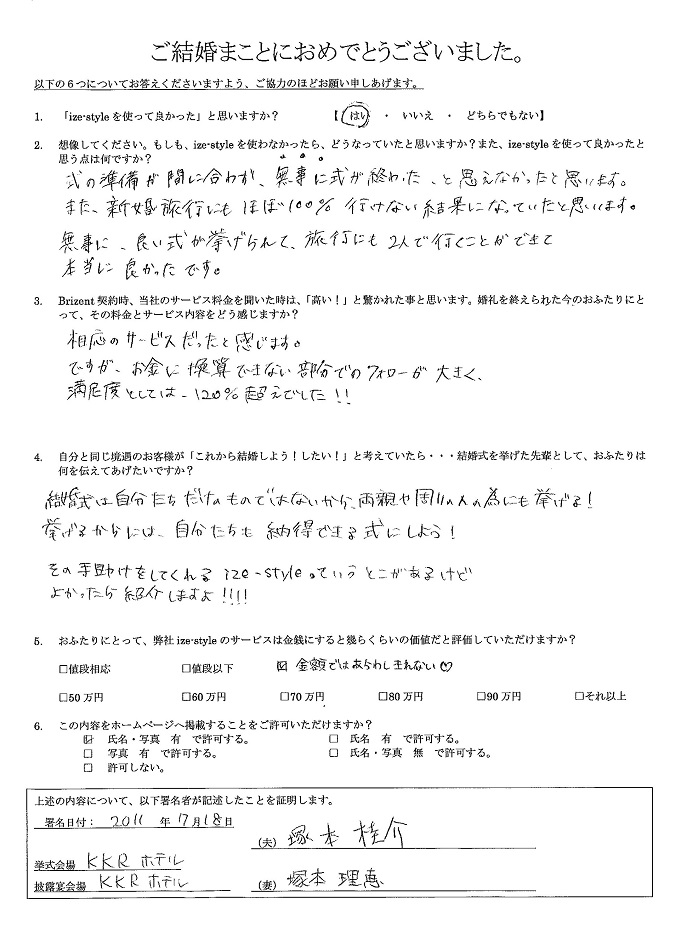 ご結婚まことにおめでとうございました。
以下の6つについてお答えくださいますよう、ご協力のほどお願い申しあげます。
1. 「ize-styleを使って良かった」と思いますか？ 【 はい ・ いいえ ・ どちらでもない】
2. 想像してください。もしも、ize-styleを使わなかったら、どうなっていたと思いますか？また、ize-styleを使って良かったと
思う点は何ですか？
式の準備が間に合わず、無事に式が終わった、と思えなかったと思います。
また、新婚旅行にもほぼ100% 行けない結果になっていたと思います。
無事に、良い式が挙げられて、旅行にも2人で行くことができて
本当に良かったです。
3. Brizent契約時、当社のサービス料金を聞いた時は、「高い！」と驚かれた事と思います。婚礼を終えられた今のおふたりにと
って、その料金とサービス内容をどう感じますか？
相応のサービスだったと感じます。
ですが、お金に換算できない部分でのフォローが大きく、
満足度としては、120%超えでした!!
4. 自分と同じ境遇のお客様が「これから結婚しよう！したい！」と考えていたら・・・結婚式を挙げた先輩として、おふたりは
何を伝えてあげたいですか？
結婚式は自分たちだけのものではないから、両親や周りの人の為にも挙げる!
挙げるからには、自分たちも納得できる式にしよう!
その手助けをしてくれるize-styleっていうとこがあるけど
よかったら紹介しますよ!!!!
5. おふたりにとって、弊社ize-styleのサービスは金銭にすると幾らくらいの価値だと評価していただけますか？
□値段相応 □値段以下 ☒ 金額ではあらわしきれない♡
□50万円 □60万円 □70万円 □80万円 □90万円 □それ以上
6. この内容をホームページへ掲載することをご許可いただけますか？
☑ 氏名・写真 有 で許可する。 □ 氏名 有 で許可する。
□ 写真 有 で許可する。 □ 氏名・写真 無 で許可する。
□ 許可しない。
上述の内容について、以下署名者が記述したことを証明します。
署名日付： 2011 年 7月18日
(夫) 塚本 桂介
挙式会場 KKR ホテル
披露宴会場 KKR ホテル (妻) 塚本 理恵